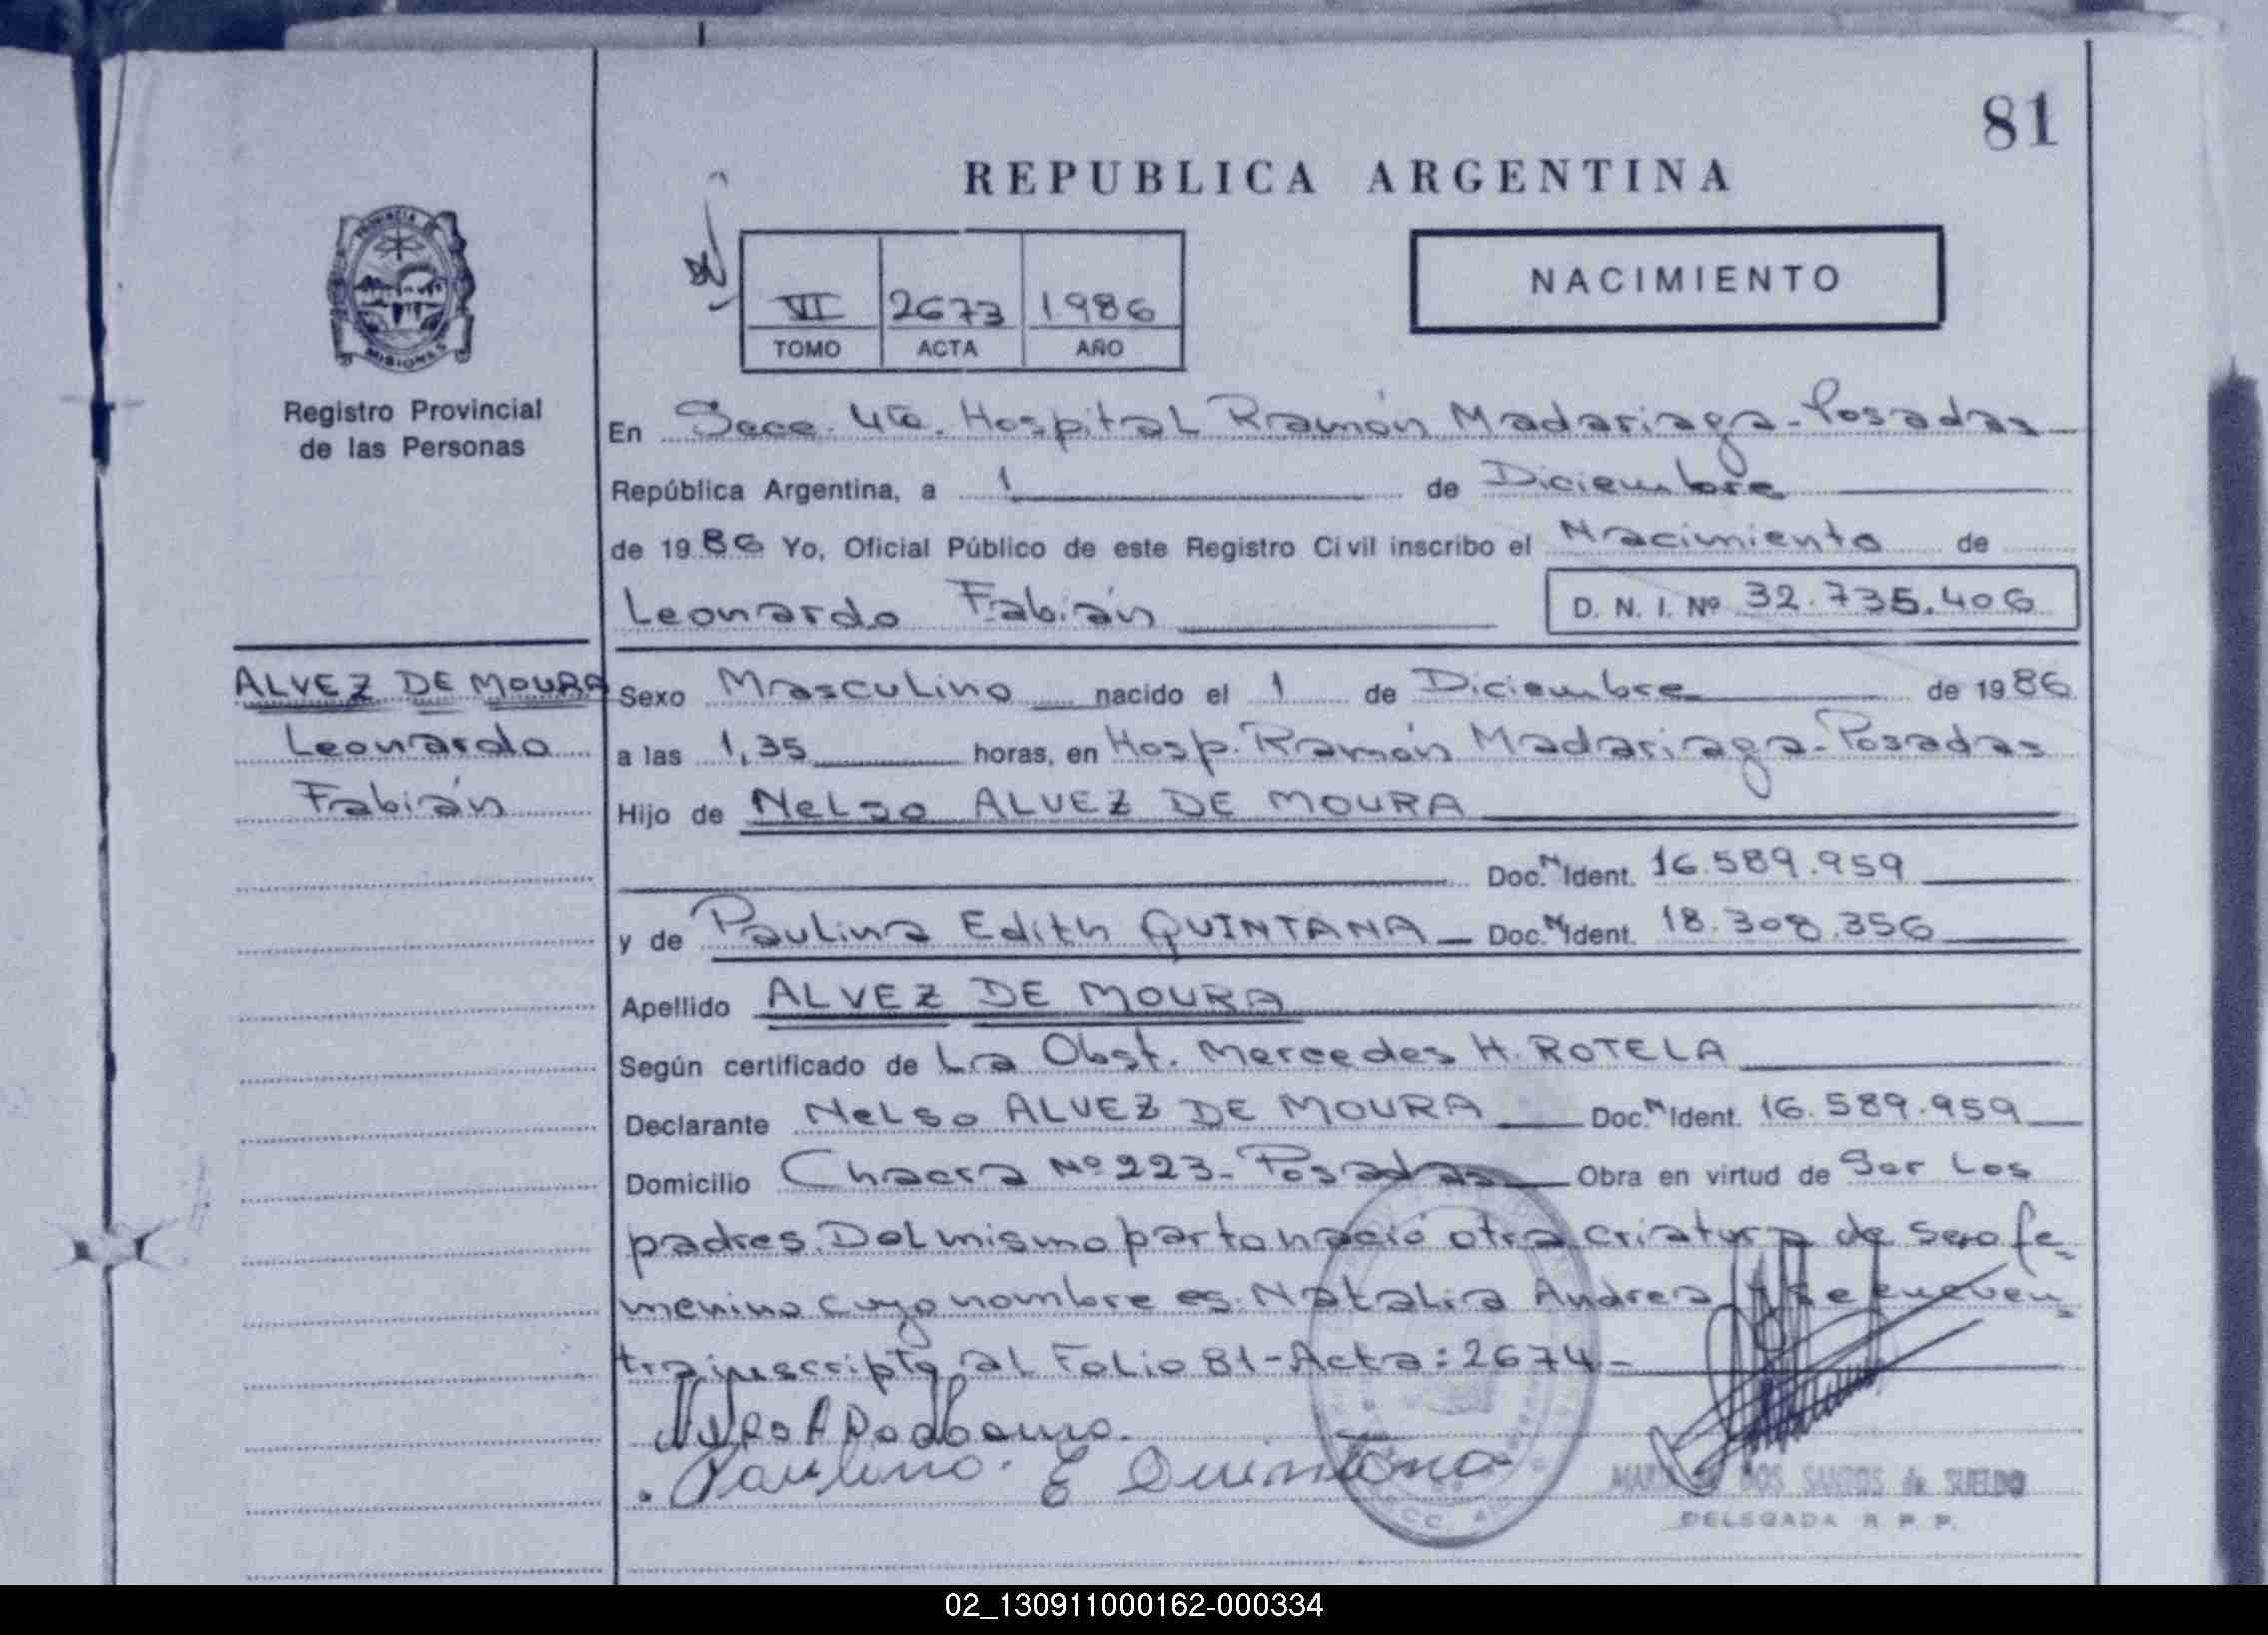 81
REPUBLICA ARGENTINA
NACIMIENTO
VI 2673 1986
TOMO ACTA AÑO
PROVINCIA DE
MISIONES
Registro Provincial
de las Personas
En Secc. 4ta. Hospital Ramón Madariaga - Posadas
República Argentina, a 1 de Diciembre
de 1986 Yo, Oficial Público de este Registro Civil inscribo el Nacimiento de
Leonardo Fabián D. N. I. Nº 32.735.406
ALVEZ DE MOURA
Leonardo
Fabián
Sexo Masculino nacido el 1 de Diciembre de 1986
a las 1,35 horas, en Hosp. Ramón Madariaga - Posadas
Hijo de Nelso ALVEZ DE MOURA
Doc. N Ident. 16.589.959
y de Paulina Edith QUINTANA Doc. N Ident. 18.308.356
Apellido ALVEZ DE MOURA
Según certificado de La Obst. Mercedes H. ROTELA
Declarante Nelso ALVEZ DE MOURA Doc. N Ident. 16.589.959
Domicilio Chacra Nº 223 - Posadas Obra en virtud de Ser Los
padres. Del mismo parto nació otra criatura de sexo fe-
menino cuyo nombre es: Natalia Andrea y se encuen-
tra inscripta al Folio 81 - Acta: 2674 -
Paulina E Quintana
DOS SANTOS de SUELDO
DELEGADA R. P. P.
02_130911000162-000334